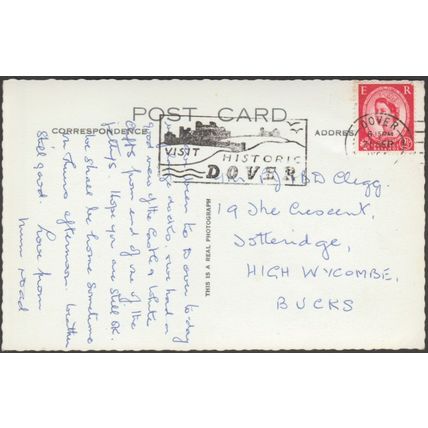 POST CARD
CORRESPONDENCE
ADDRESS
E R
DOVER
VISIT HISTORIC
DOVER
THIS IS A REAL PHOTOGRAPH
to Dover to-day
had a
good view of the Castle & White
Cliffs from end of one of the
jettys. Hope you are still OK.
We shall be home sometime
on Thurs afternoon. Weather
still good. Love from
Mum
Clegg.
19 The Crescent,
Totteridge,
HIGH WYCOMBE,
BUCKS